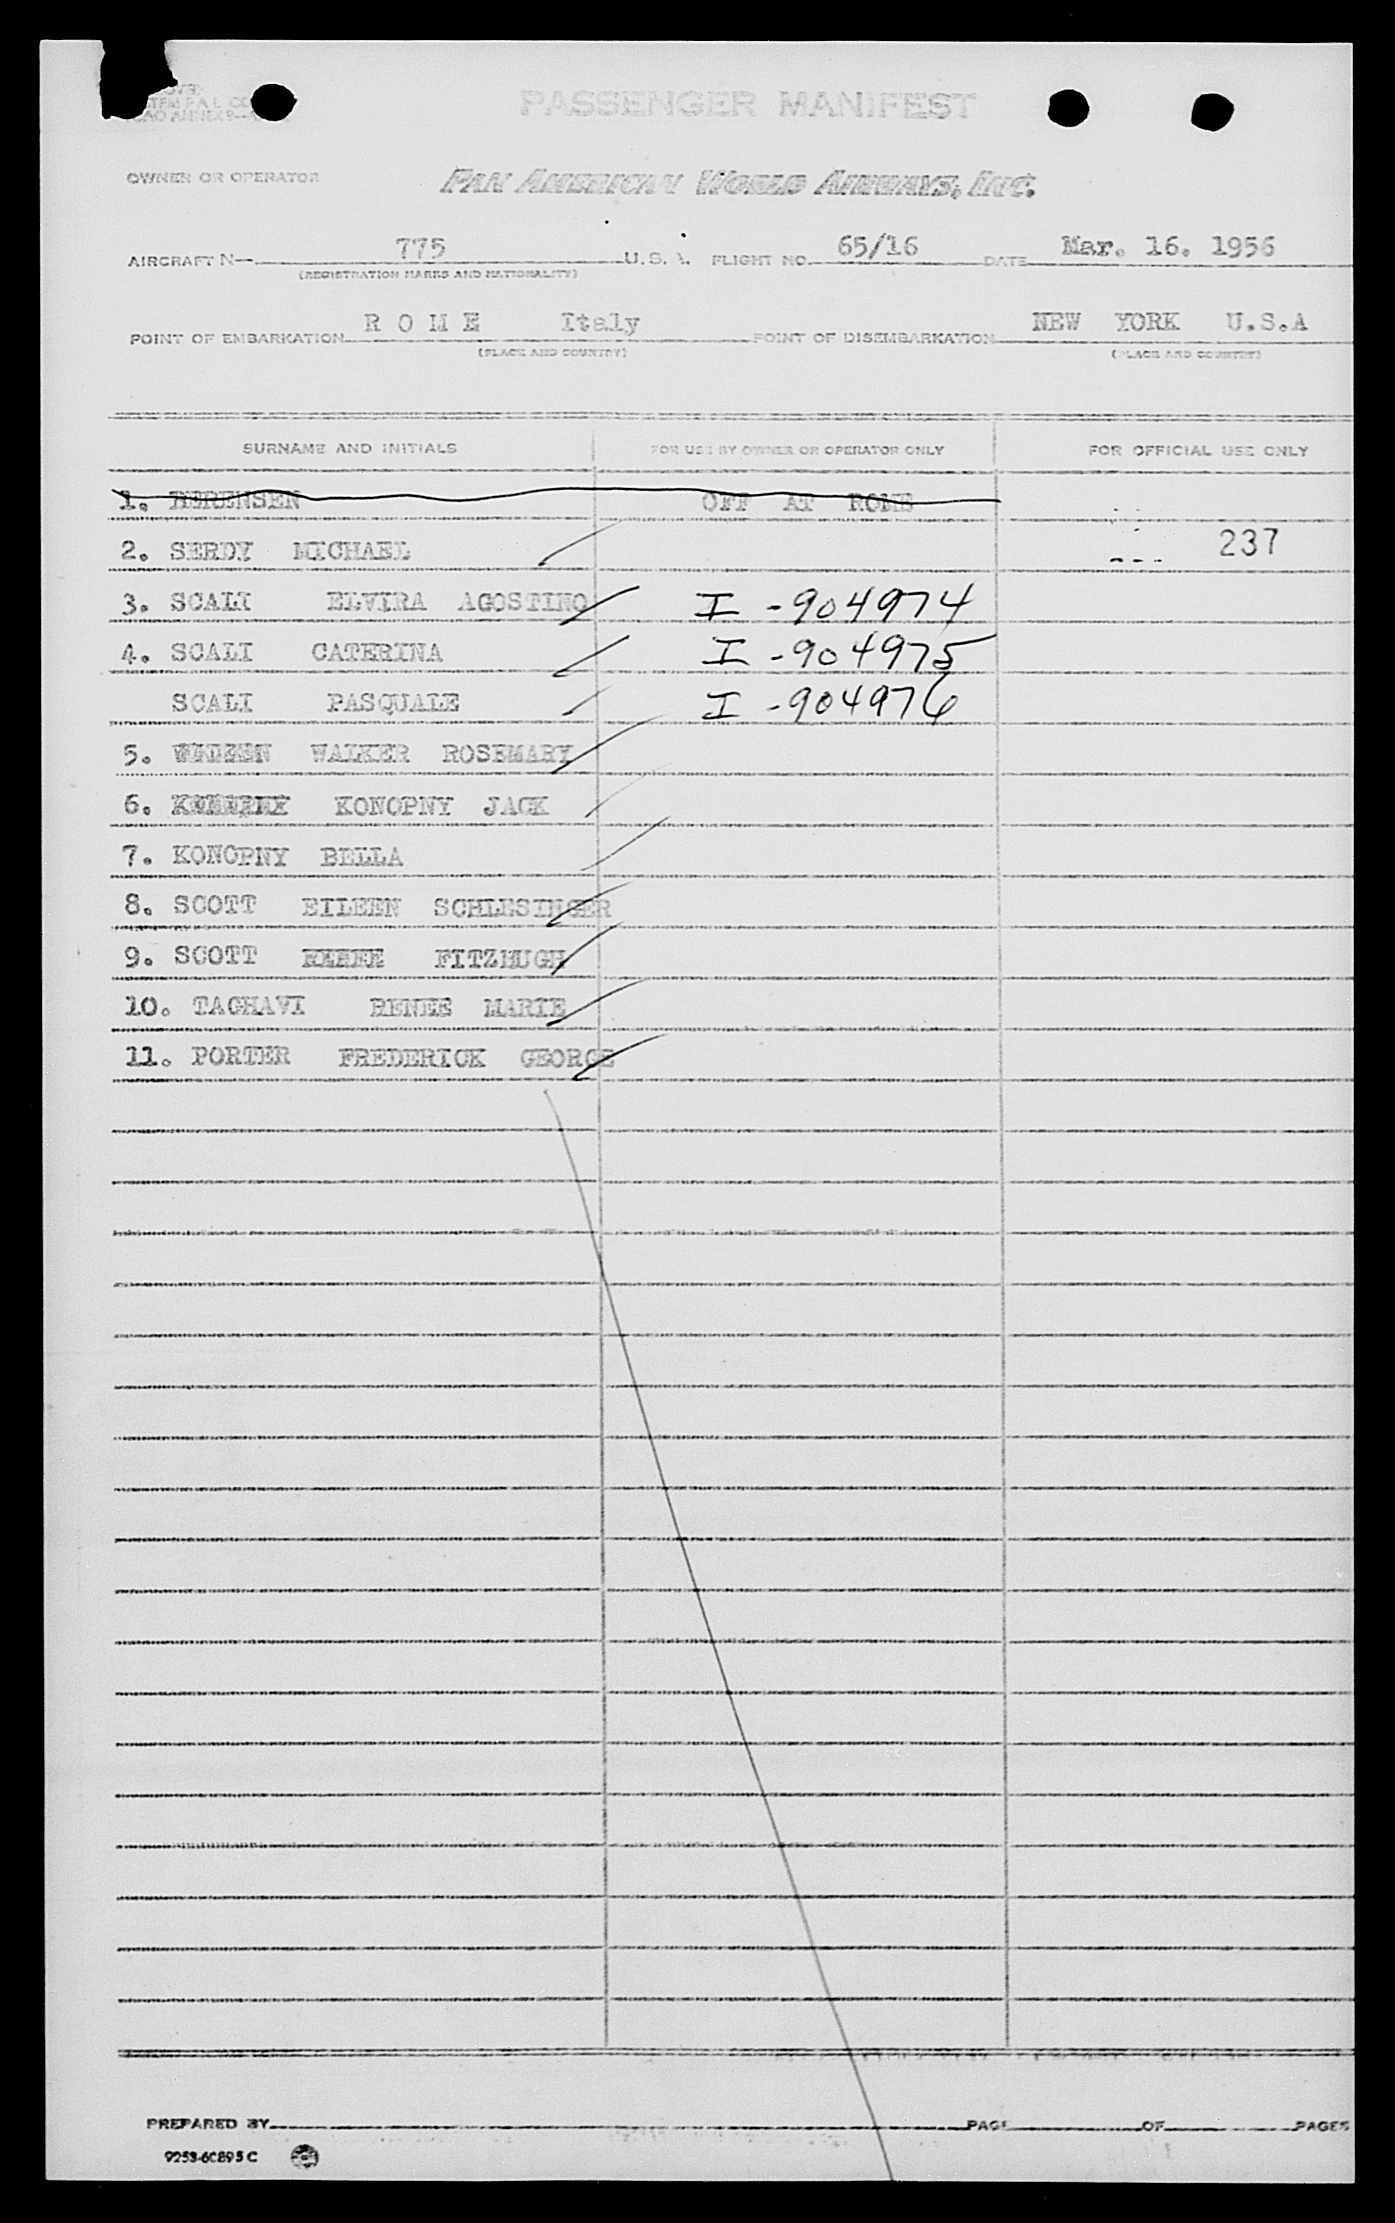 PASSENGER MANIFEST
OWNER OR OPERATOR PAN AMERICAN WORLD AIRWAYS, INC.
AIRCRAFT N— 775 U.S.A. FLIGHT NO. 65/16 DATE Mar. 16. 1956
(REGISTRATION MARKS AND NATIONALITY)
POINT OF EMBARKATION R O M E Italy POINT OF DISEMBARKATION NEW YORK U.S.A
(PLACE AND COUNTRY) (PLACE AND COUNTRY)
SURNAME AND INITIALS FOR USE BY OWNER OR OPERATOR ONLY FOR OFFICIAL USE ONLY
1. BERENSEN OFF AT ROME
2. SERDY MICHAEL 237
3. SCALI ELVIRA AGOSTINO I -904974
4. SCALI CATERINA I -904975
SCALI PASQUALE I -904976
5. WALKER ROSEMARY
6. KONOPNY JACK
7. KONOPNY BELLA
8. SCOTT EILEEN SCHLESINGER
9. SCOTT FITZHUGH
10. TAGHAVI RENEE MARIE
11. PORTER FREDERICK GEORGE
PREPARED BY PAGE OF PAGES
9253-6C895 C